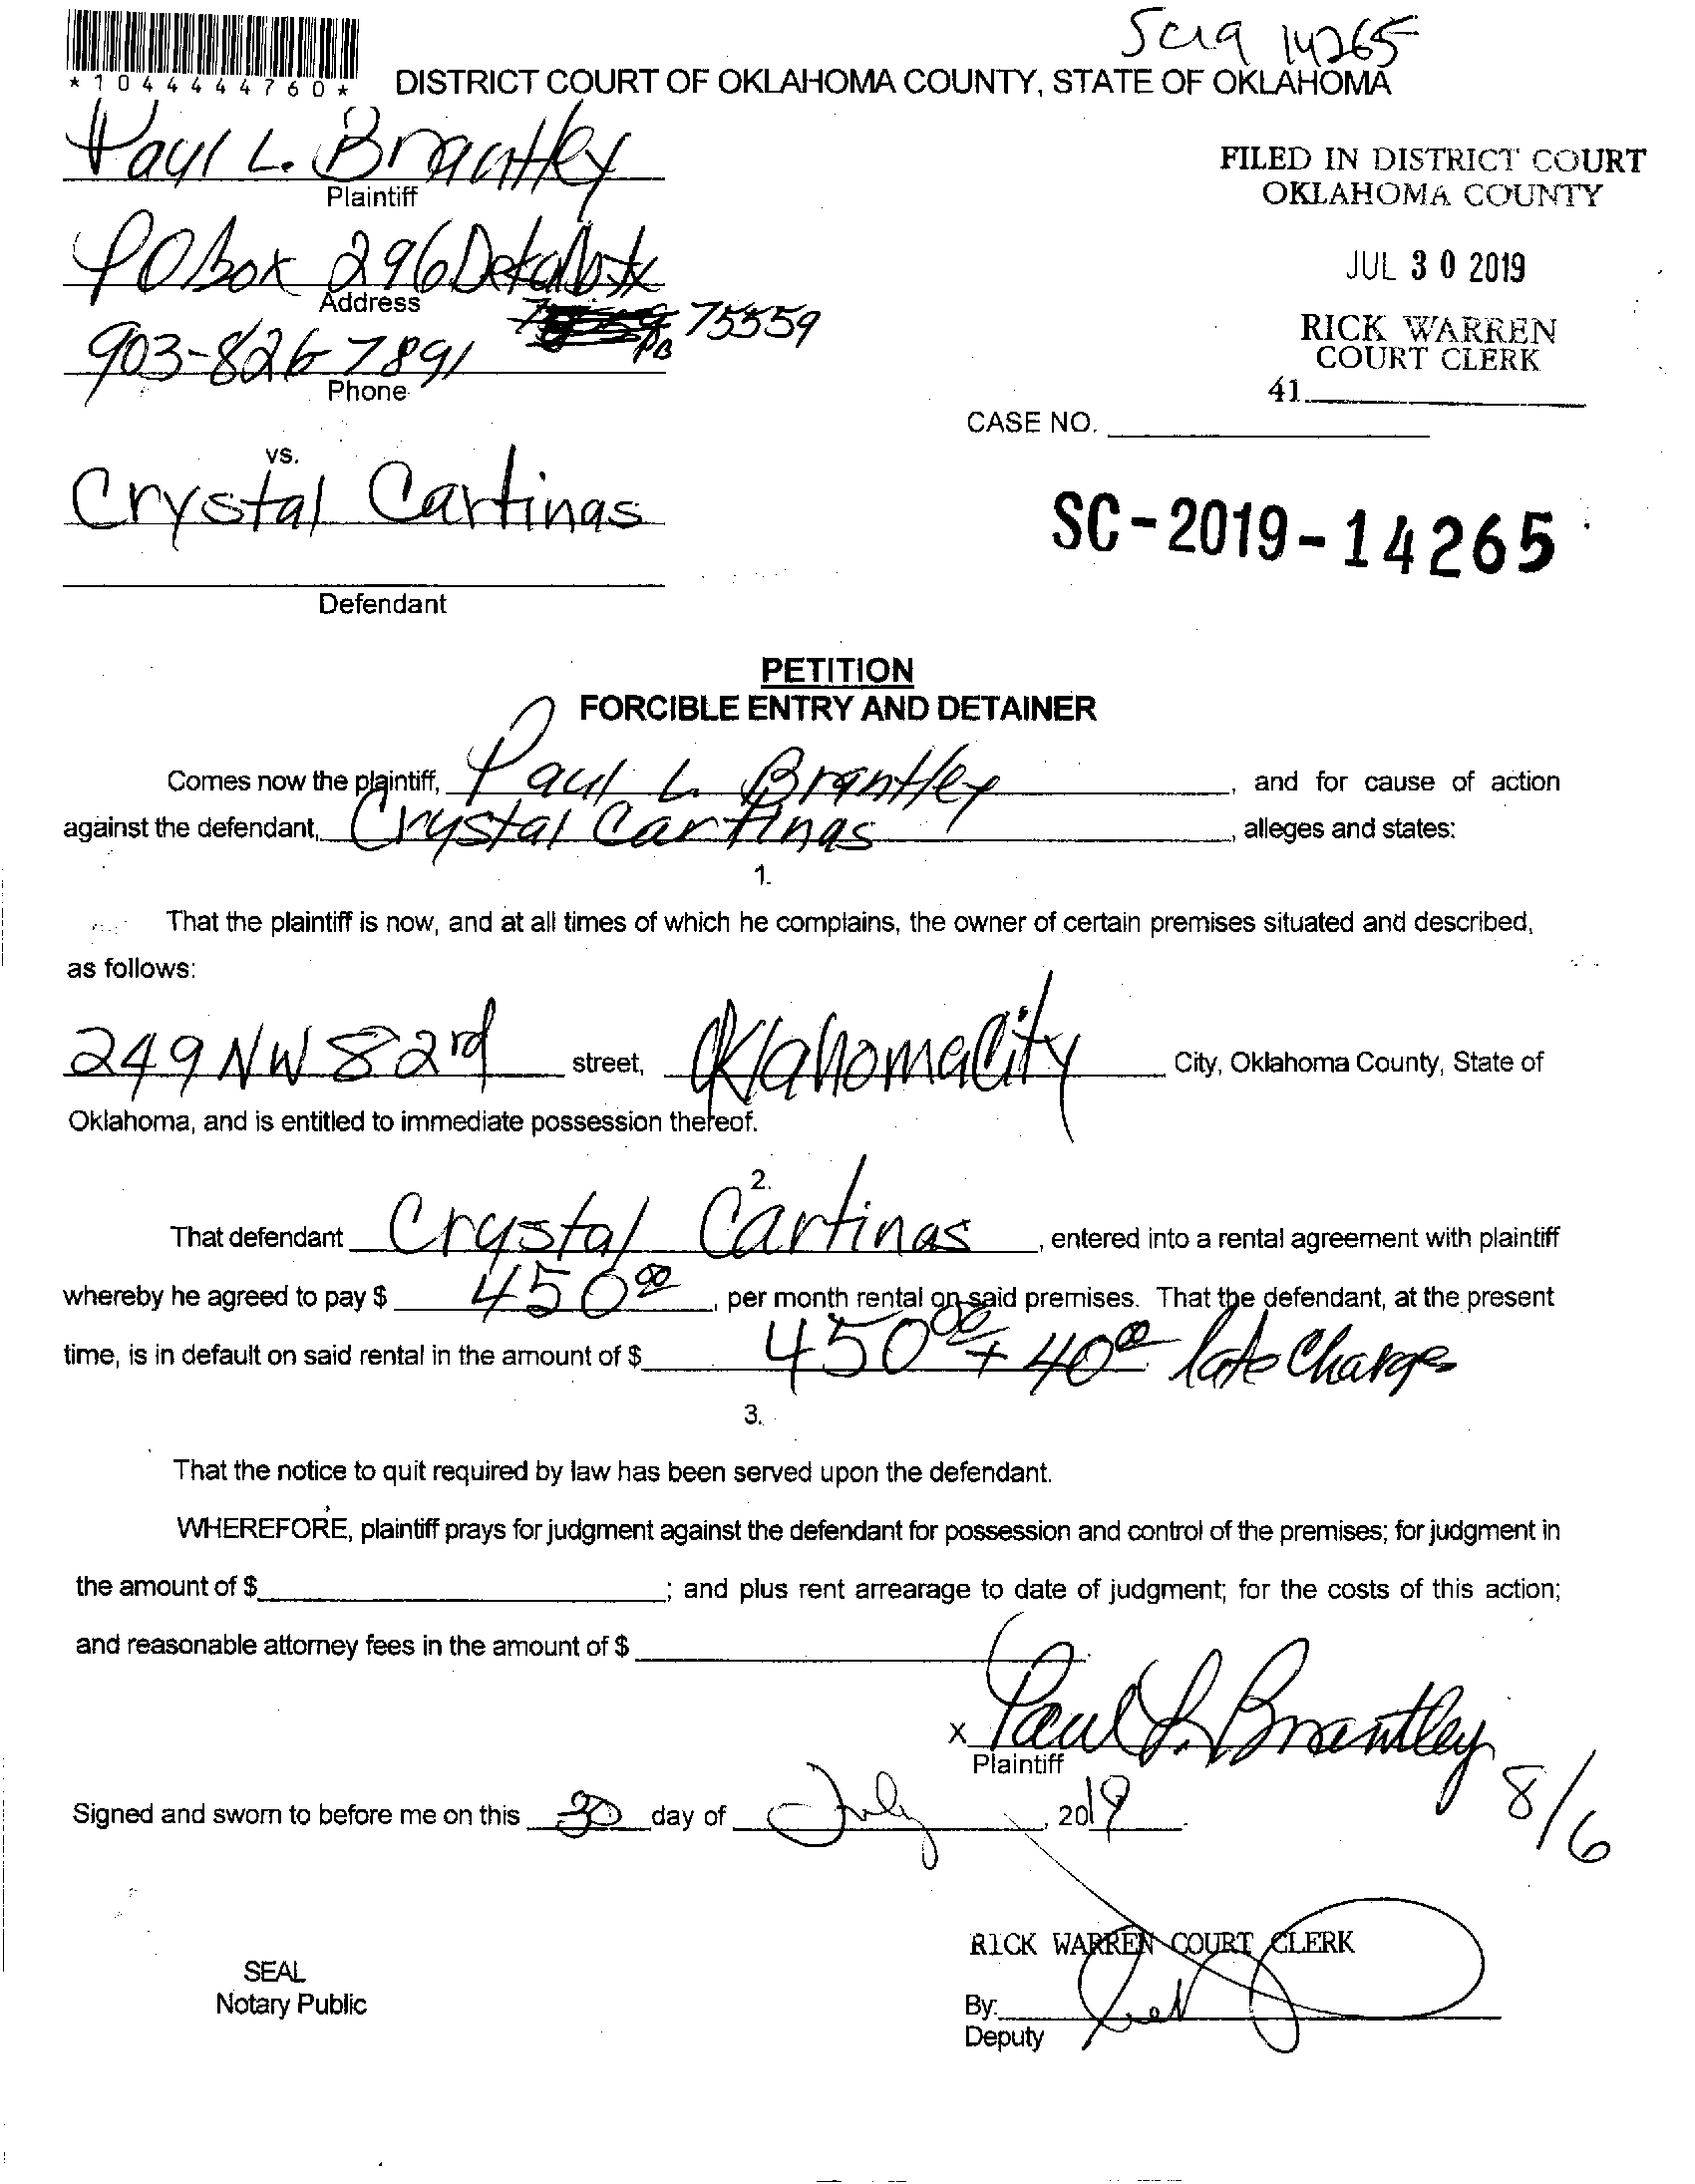 Sc19 14265
*1044444760*
DISTRICT COURT OF OKLAHOMA COUNTY, STATE OF OKLAHOMA
Paul L. Brantley
Plaintiff
FILED IN DISTRICT COURT
OKLAHOMA COUNTY
PO box 296 Dekalb tx
Address
75559
JUL 30 2019
903-826-7891
Phone
RICK WARREN
COURT CLERK
41
CASE NO.
vs.
Crystal Cartinas
SC-2019-14265
Defendant
PETITION
FORCIBLE ENTRY AND DETAINER
Comes now the plaintiff, Paul L. Brantley, and for cause of action
against the defendant, Crystal Cartinas, alleges and states:
1.
That the plaintiff is now, and at all times of which he complains, the owner of certain premises situated and described,
as follows:
249 NW 82rd street, Oklahoma City City, Oklahoma County, State of
Oklahoma, and is entitled to immediate possession thereof.
2.
That defendant Crystal Cartinas, entered into a rental agreement with plaintiff
whereby he agreed to pay $ 450 00, per month rental on said premises. That the defendant, at the present
time, is in default on said rental in the amount of $ 450 00 + 40 00 late Charges
3.
That the notice to quit required by law has been served upon the defendant.
WHEREFORE, plaintiff prays for judgment against the defendant for possession and control of the premises; for judgment in
the amount of $ ; and plus rent arrearage to date of judgment; for the costs of this action;
and reasonable attorney fees in the amount of $ .
x Paul L. Brantley
Plaintiff
8/6
Signed and sworn to before me on this 30 day of July, 2019.
RICK WARREN COURT CLERK
SEAL
Notary Public
By:
Deputy